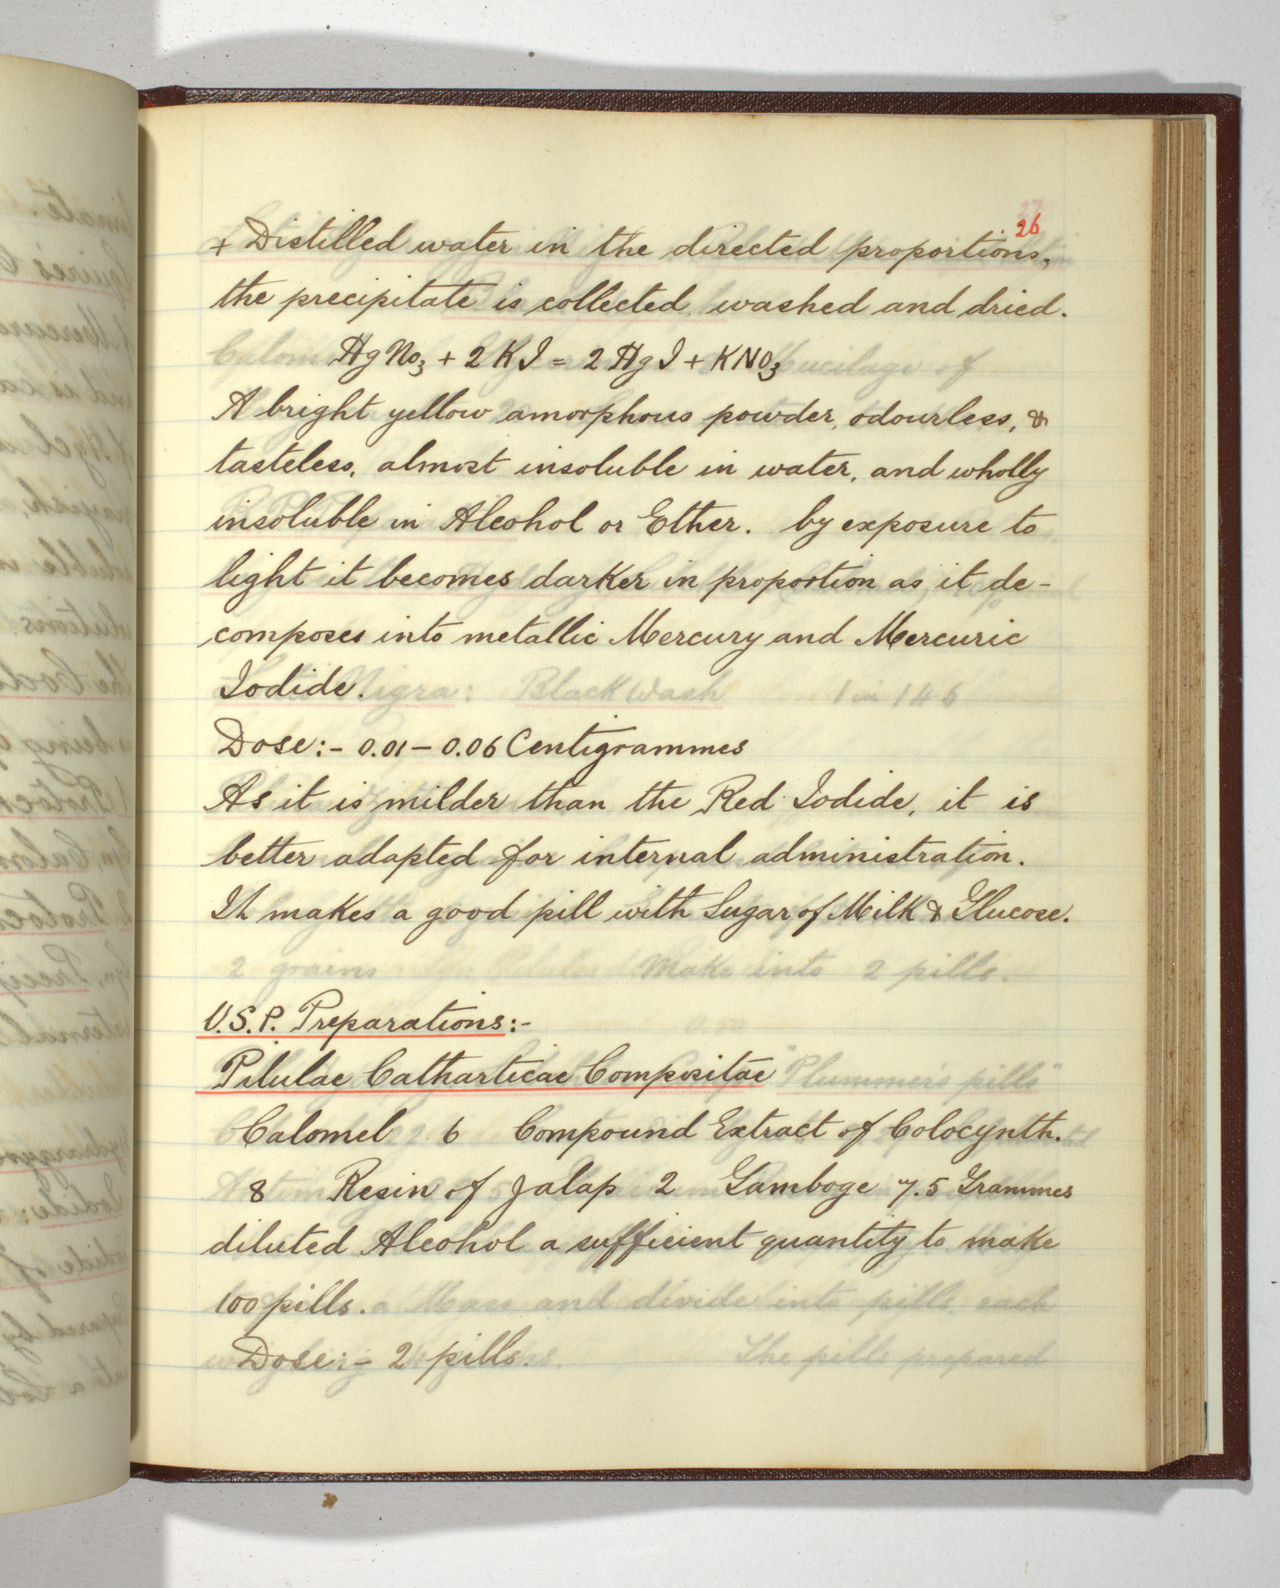 26
+ Distilled water in the directed proportions,
the precipitate is collected, washed and dried.
HgNo3 + 2 KI = 2 HgI + KNO3
A bright yellow amorphous powder, odourless, &
tasteless, almost insoluble in water, and wholly
insoluble in Alcohol or Ether. by exposure to
light it becomes darker in proportion as it de-
composes into metallic Mercury and Mercuric
Iodide.
Dose:- 0.01 - 0.06 Centigrammes
As it is milder than the Red Iodide, it is
better adapted for internal administration.
It makes a good pill with Sugar of Milk & Glucose.
U.S.P. Preparations:-
Pilulae Catharticae Compositae
Calomel 6 Compound Extract of Colocynth.
8 Resin of Jalap 2 Gamboge 7.5 Grammes
diluted Alcohol a sufficient quantity to make
100 pills.
Dose:- 2 pills.